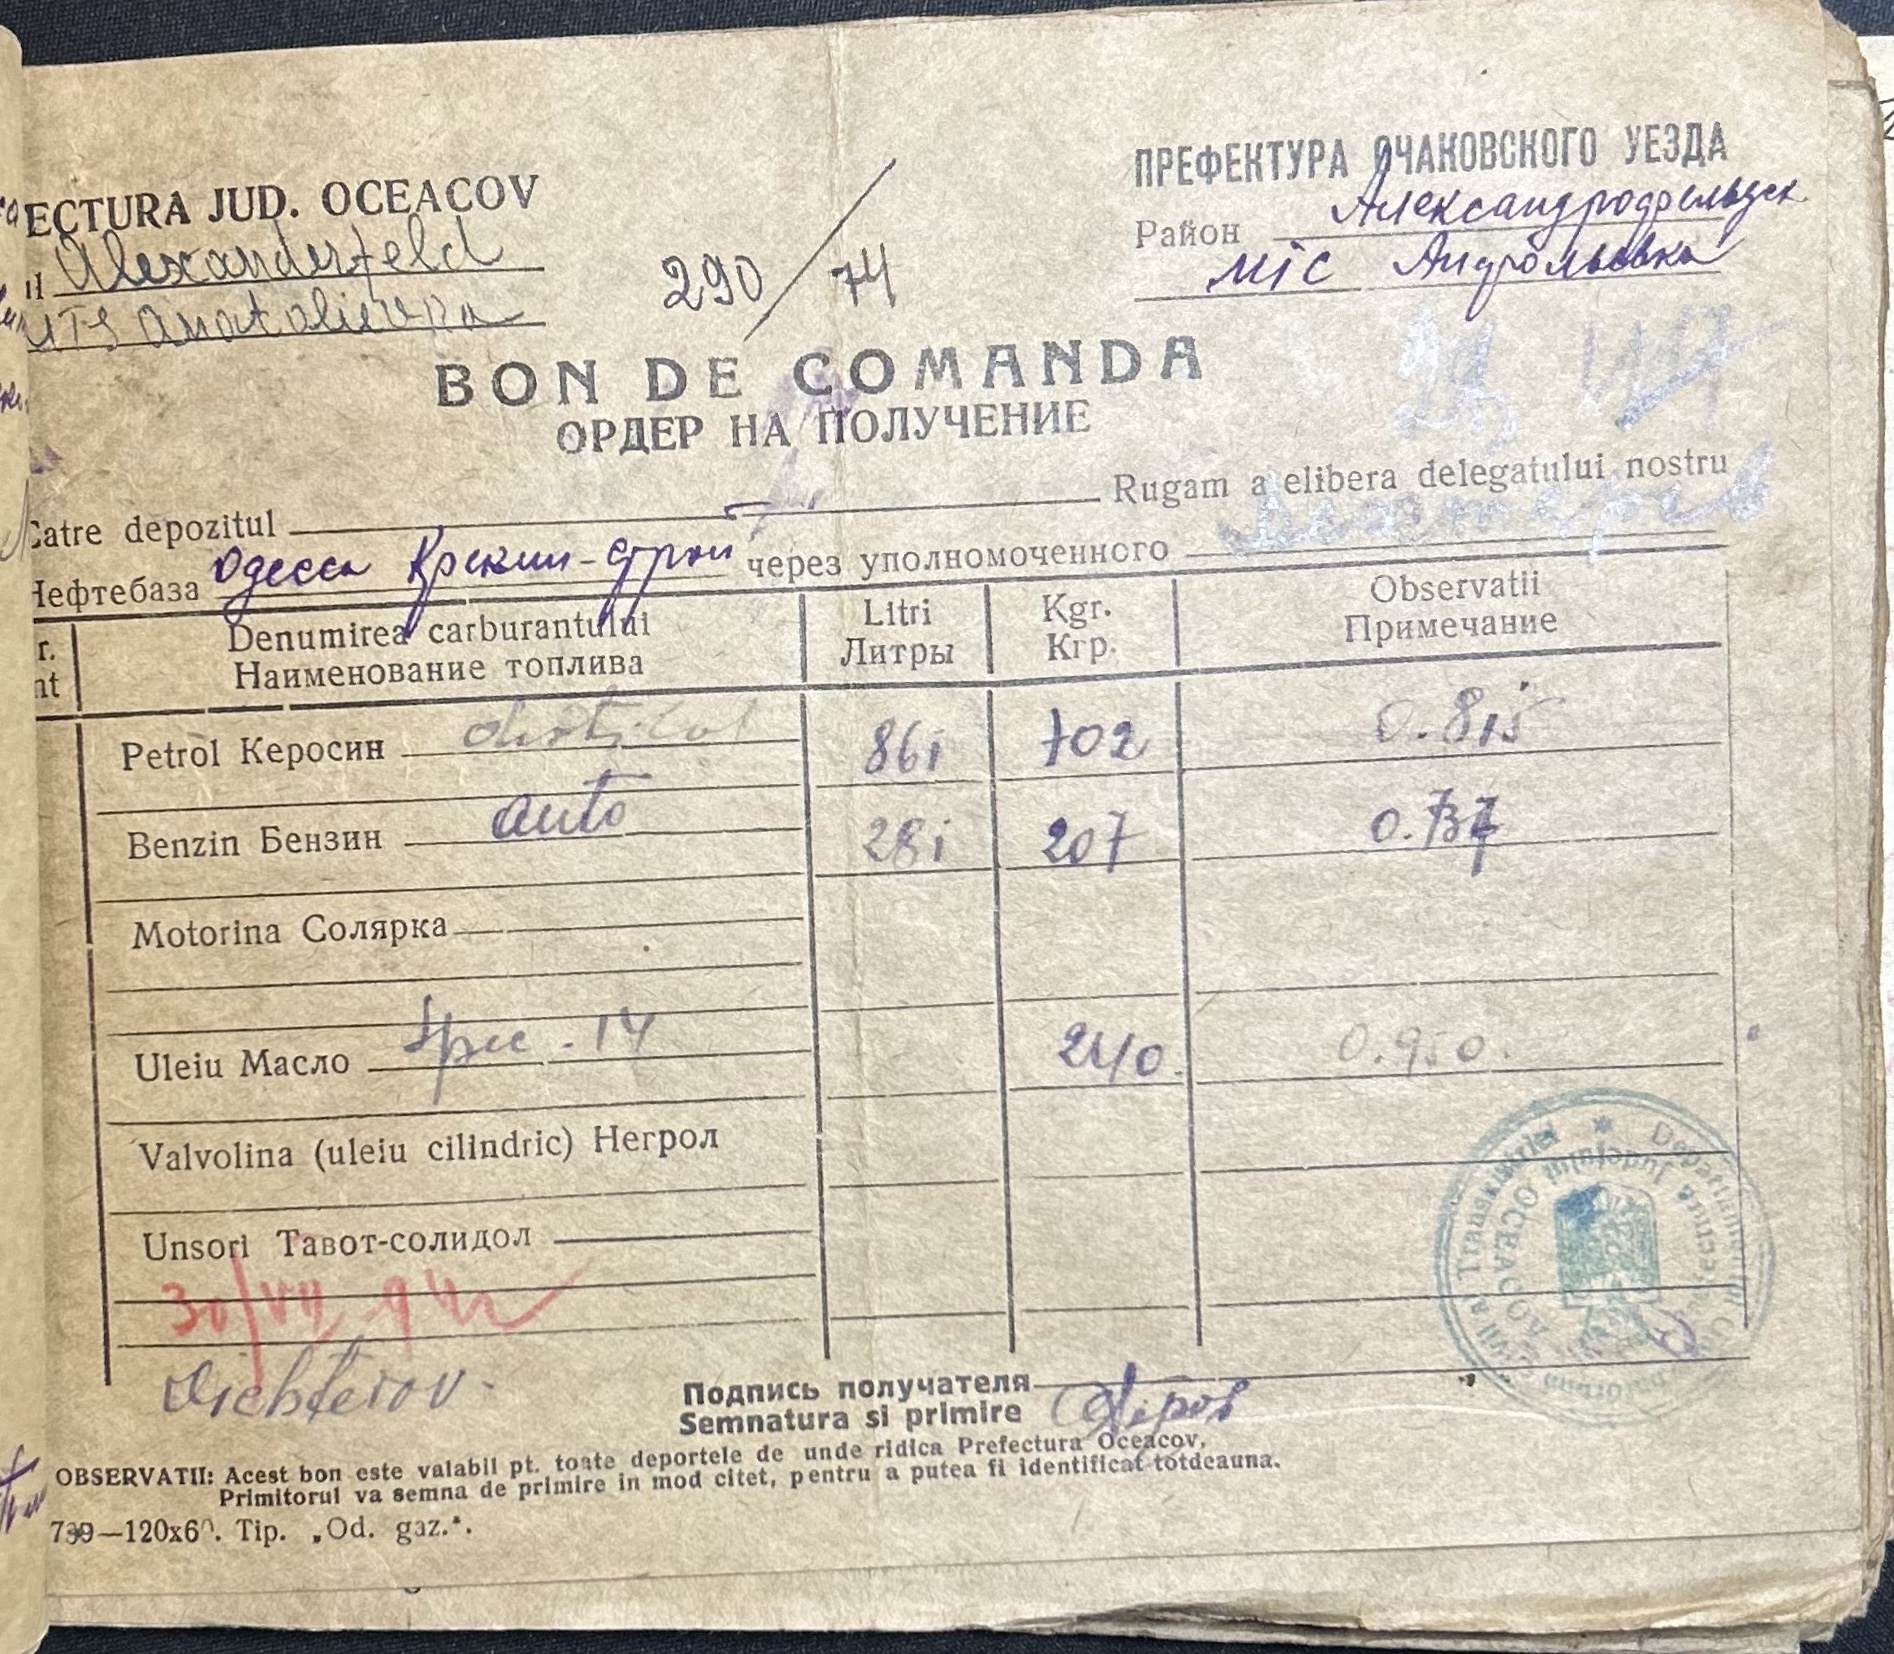 ECTURA JUD. OCEACOV
Alexanderfeld
MTS Anatolievca
290/74
ПРЕФЕКТУРА ОЧАКОВСКОГО УЕЗДА
Район Александрофельдск
МТС
BON DE COMANDA
ОРДЕР НА ПОЛУЧЕНИЕ
Catre depozitul Rugam a elibera delegatului nostru
Нефтебаза Одесса через уполномоченного
r. Denumirea carburantului Litri Kgr. Observatii
nt Наименование топлива Литры Кгр. Примечание
Petrol Керосин 861 702 0.815
Benzin Бензин auto 281 207 0.737
Motorina Солярка
Uleiu Масло 14 240 0.950.
Valvolina (uleiu cilindric) Негрол
Unsori Тавот-солидол
30/VII
Подпись получателя
Semnatura si primire
OBSERVATII: Acest bon este valabil pt. toate deportele de unde ridica Prefectura Oceacov,
Primitorul va semna de primire in mod citet, pentru a putea fi identificat totdeauna.
739—120x60. Tip. „Od. gaz.".
Transnistriei * Departamentul
Judeţului OCEACOV